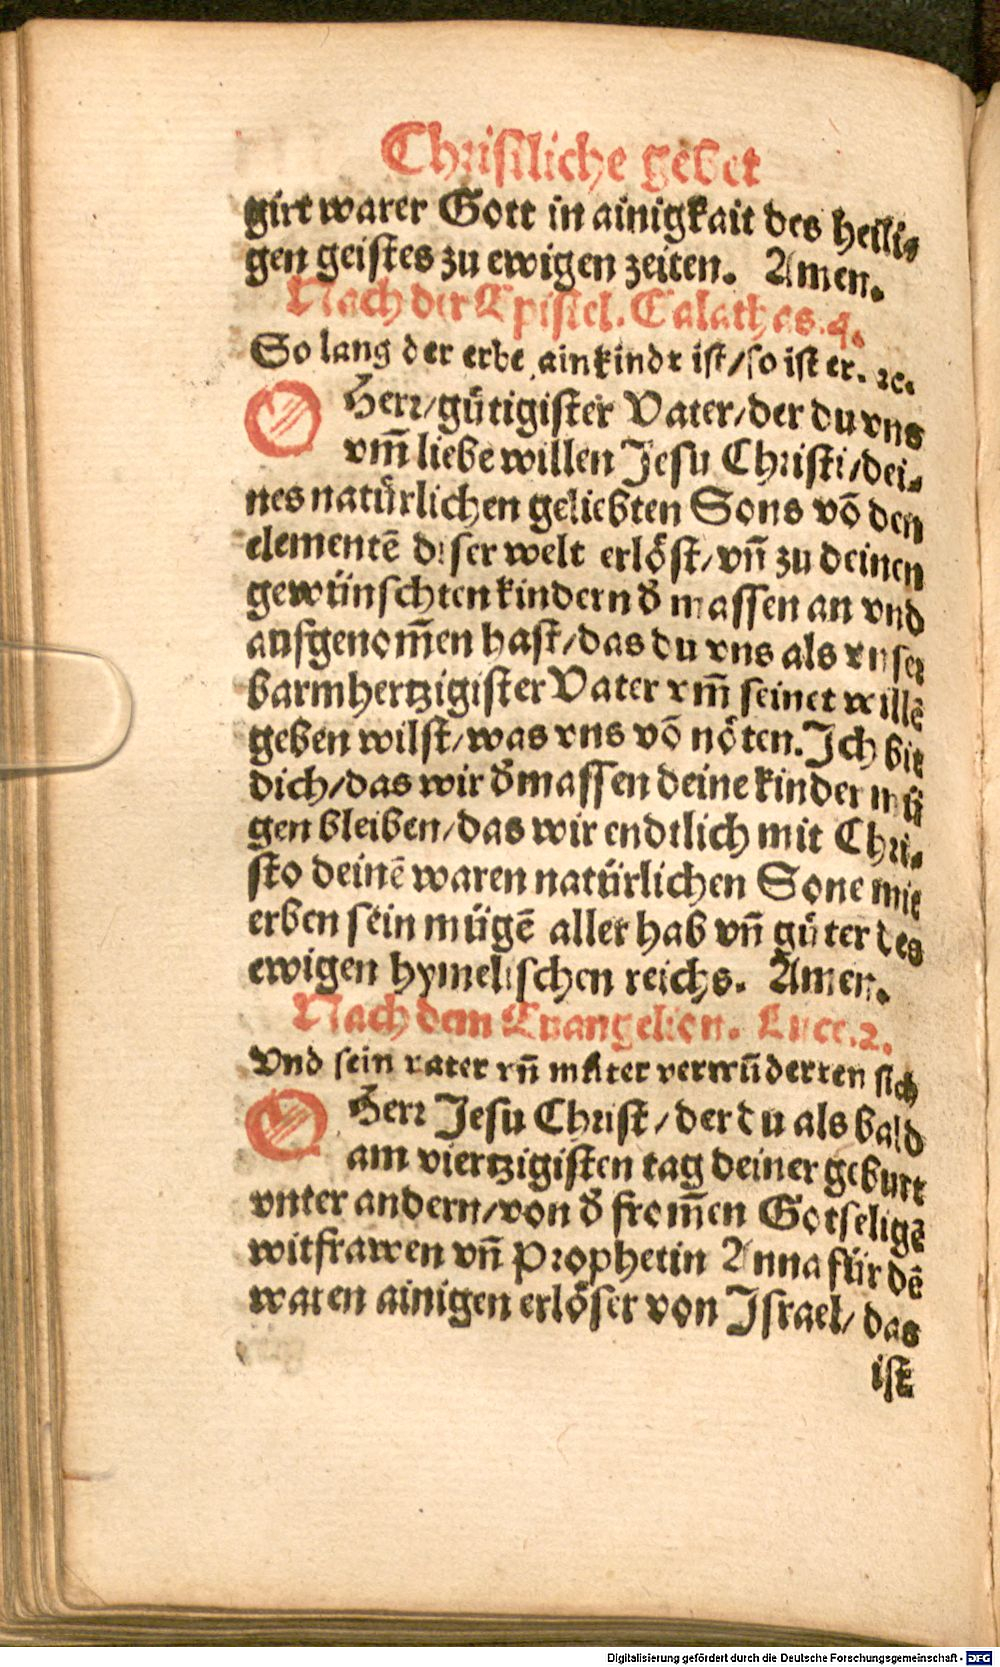 Chriſtliche gebet
girt warer Gott in ainigkait des heili⸗
gen geiſtes zu ewigen zeiten. Amen.
Nach der Epiſtel. Galathas. 4.
So lang der erbe ain kindt iſt/ſo iſt er. ꝛc.
O Herr/gütigiſter Vater/der du vns
vm̃ liebe willen Jeſu Chriſti/dei⸗
nes natürlichen geliebten Sons võ den
elementẽ diſer welt erlöſt/vñ zu deinen
gewünſchten kindern d̕ maſſen an vnd
aufgenom̃en haſt/das du vns als vnſer
barmhertzigiſter Vater vm̃ ſeinet willẽ
geben wilſt/was vns võ nöten. Ich bit
dich/das wir d̕maſſen deine kinder mü
gen bleiben/das wir endtlich mit Chri⸗
ſto deinẽ waren natürlichen Sone mit
erben ſein mügẽ aller hab vñ güter des
ewigen hymeliſchen reichs. Amen.
Nach dem Euangelion. Luce. 2.
Vnd ſein vater vñ můter verwũderten ſich
O Herr Jeſu Chriſt/der du als bald
am viertzigiſten tag deiner geburt
vnter andern/von d̕ from̃en Gotſeligẽ
witfrawen vñ Prophetin Anna für dẽ
waren ainigen erlöſer von Iſrael/das
iſt
Digitalisierung gefördert durch die Deutsche Forschungsgemeinschaft - DFG